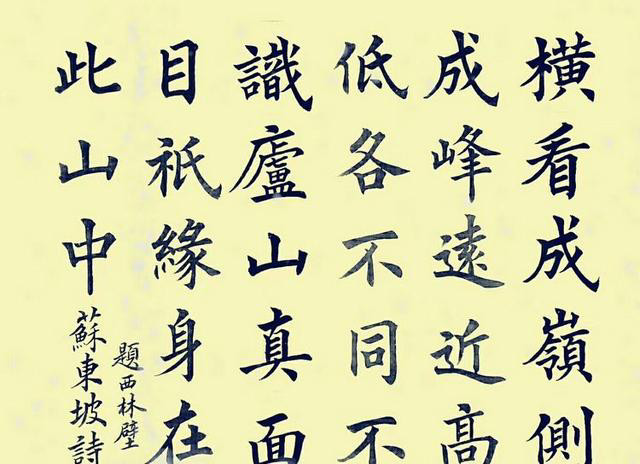 橫看成嶺側
成峰遠近高
低各不同不
識廬山真面
目祇緣身在
此山中
題西林壁
蘇東坡詩